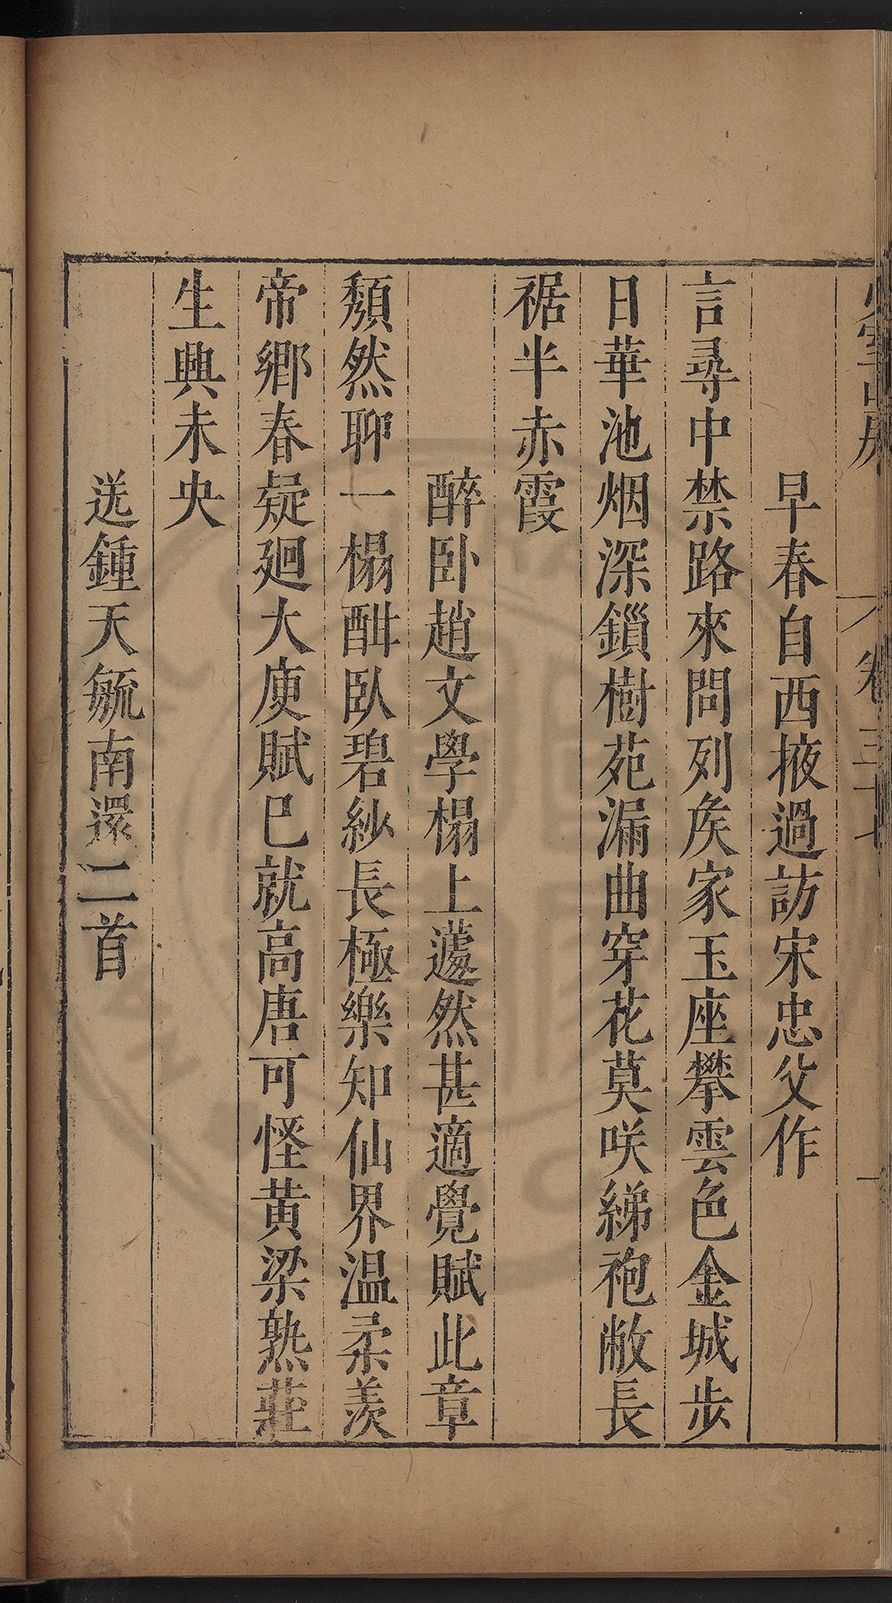 早春自西掖過訪宋忠父作
言尋中禁路來問列矦家玉座攀雲色金城步
日華池烟深鎖樹苑漏曲穿花莫咲綈袍敝長
裾半赤霞
醉卧趙文學榻上蘧然甚適覺賦此章
頹然聊一榻酣臥碧紗長極樂知仙界温柔羨
帝鄉春疑廻大庾賦巳就高唐可怪黄梁熟莊
生興未央
送鍾天毓南還二首